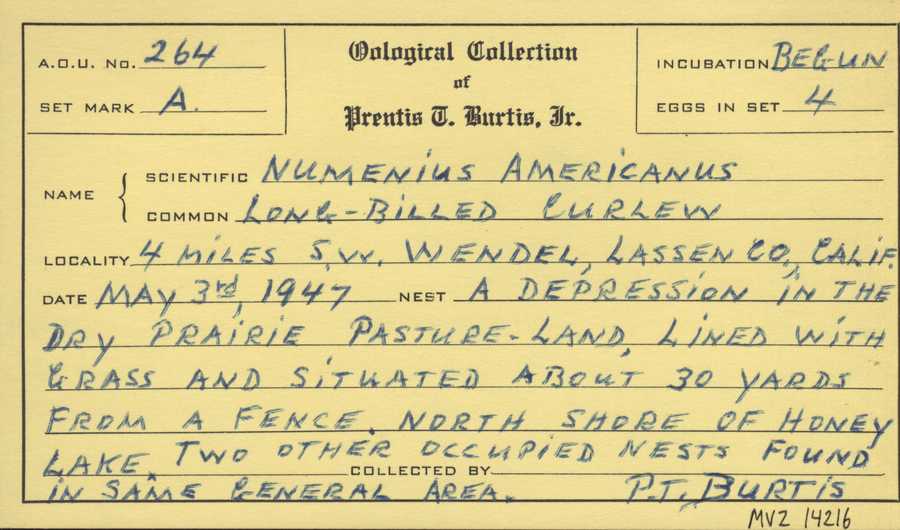 A.O.U. No. 264
SET MARK A.
Oological Collection
of
Prentis T. Burtis, Jr.
INCUBATION BEGUN
EGGS IN SET 4
NAME
SCIENTIFIC NUMENIUS AMERICANUS
COMMON LONG-BILLED CURLEW
LOCALITY 4 MILES S.W. WENDEL, LASSEN CO., CALIF.
DATE MAY 3rd, 1947 NEST A DEPRESSION IN THE
DRY PRAIRIE PASTURE-LAND, LINED WITH
GRASS AND SITUATED ABOUT 30 YARDS
FROM A FENCE. NORTH SHORE OF HONEY
LAKE. TWO OTHER OCCUPIED NESTS FOUND
COLLECTED BY
IN SAME GENERAL AREA. P.T. BURTIS
MVZ 14216